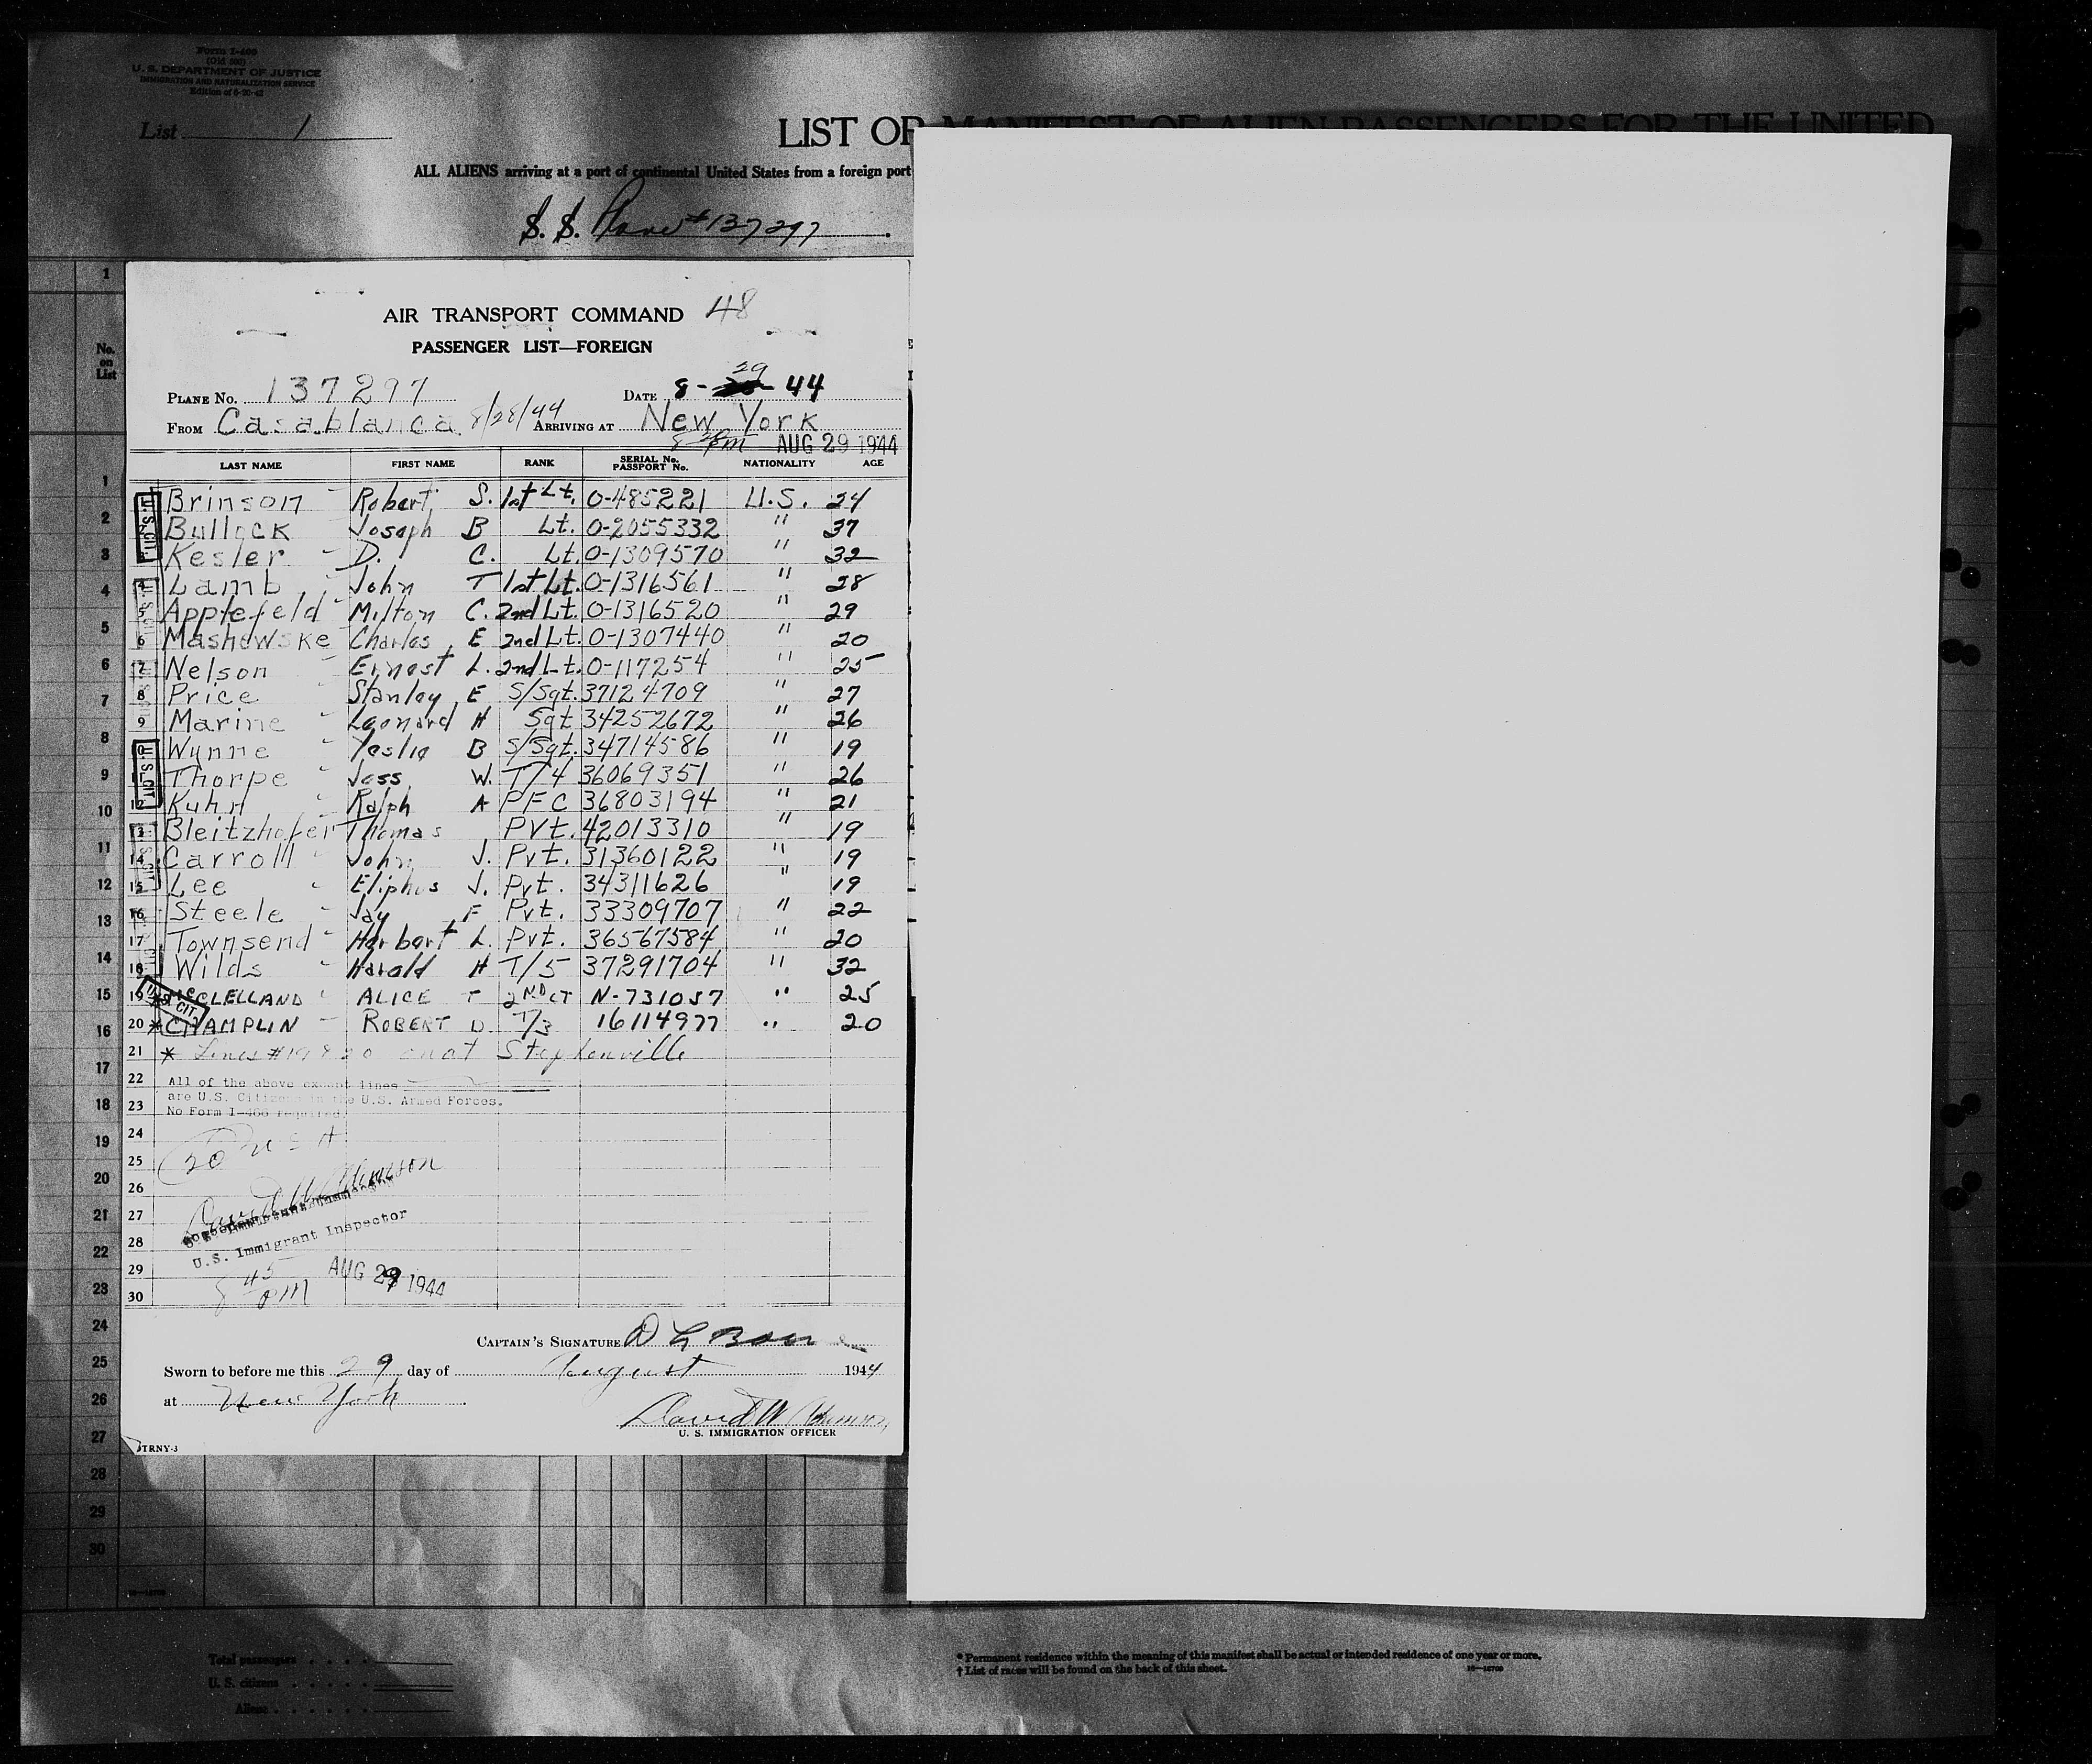 Form I-400
(Old 500)
U. S. DEPARTMENT OF JUSTICE
IMMIGRATION AND NATURALIZATION SERVICE
Edition of 6-20-42
List 1
LIST OR MANIFEST OF ALIEN PASSENGERS FOR THE UNITED
ALL ALIENS arriving at a port of continental United States from a foreign port
S. S. Plane #137297
No. on List
AIR TRANSPORT COMMAND 48
PASSENGER LIST—FOREIGN
29
PLANE No. 137297 DATE 8- 44
FROM Casablanca 8/28/44 ARRIVING AT New York
AUG 29 1944
LAST NAME FIRST NAME RANK SERIAL No. PASSPORT No. NATIONALITY AGE
Brinson Robert S. 1st Lt. O-485221 U.S. 24
Bullock Joseph B Lt. O-2055332 " 37
Kesler D. C. Lt. O-1309570 " 32
4 Lamb John T 1st Lt. O-1316561 " 28
5 Applefeld Milton C. 2nd Lt. O-1316520 " 29
6 Mashewske Charles E 2nd Lt. O-1307440 " 20
7 Nelson Ernest L. 2nd Lt. O-117254 " 25
8 Price Stanley E S/Sgt. 37124709 " 27
9 Marine Leonard H Sgt 34252672 " 26
10 Wynne Yeslie B S/Sgt. 34714586 " 19
11 Thorpe Jess W. T/4 36069351 " 26
12 Kuhn Ralph A PFC 36803194 " 21
13 Bleitzhofer Thomas Pvt. 42013310 " 19
14 Carroll John J. Pvt. 31360122 " 19
15 Lee Eliphus J. Pvt. 34311626 " 19
16 Steele Jay F Pvt. 33309707 " 22
17 Townsend Herbert L. Pvt. 36567584 " 20
18 Wilds Harold H T/5 37291704 " 32
19 * McCLELLAND ALICE T 2ND LT N-731057 " 25
20 * CHAMPLIN ROBERT D. T/3 16114977 " 20
21 * Lines #19 & 20 on at Stephenville
22 All of the above except lines
are U.S. Citizens in the U.S. Armed Forces.
23 No Form I-466 required.
24
25 20 USA
26
27
28 U.S. Immigrant Inspector
29 8 45 PM AUG 29 1944
30
U.S. CIT.
U.S. CIT.
U.S. CIT.
CAPTAIN'S SIGNATURE
Sworn to before me this 29 day of August 1944
at New York
David W
U. S. IMMIGRATION OFFICER
TRNY-3
1
1
2
3
4
5
6
7
8
9
10
11
12
13
14
15
16
17
18
19
20
21
22
23
24
25
26
27
28
29
30
16—18708
Total passengers
U. S. citizens
Aliens
* Permanent residence within the meaning of this manifest shall be actual or intended residence of one year or more.
† List of races will be found on the back of this sheet.
16—18708